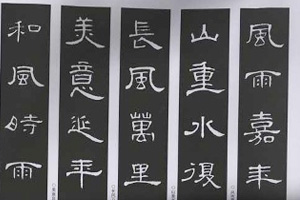 風雨嘉年
山重水複
長風萬里
美意延年
和風時雨